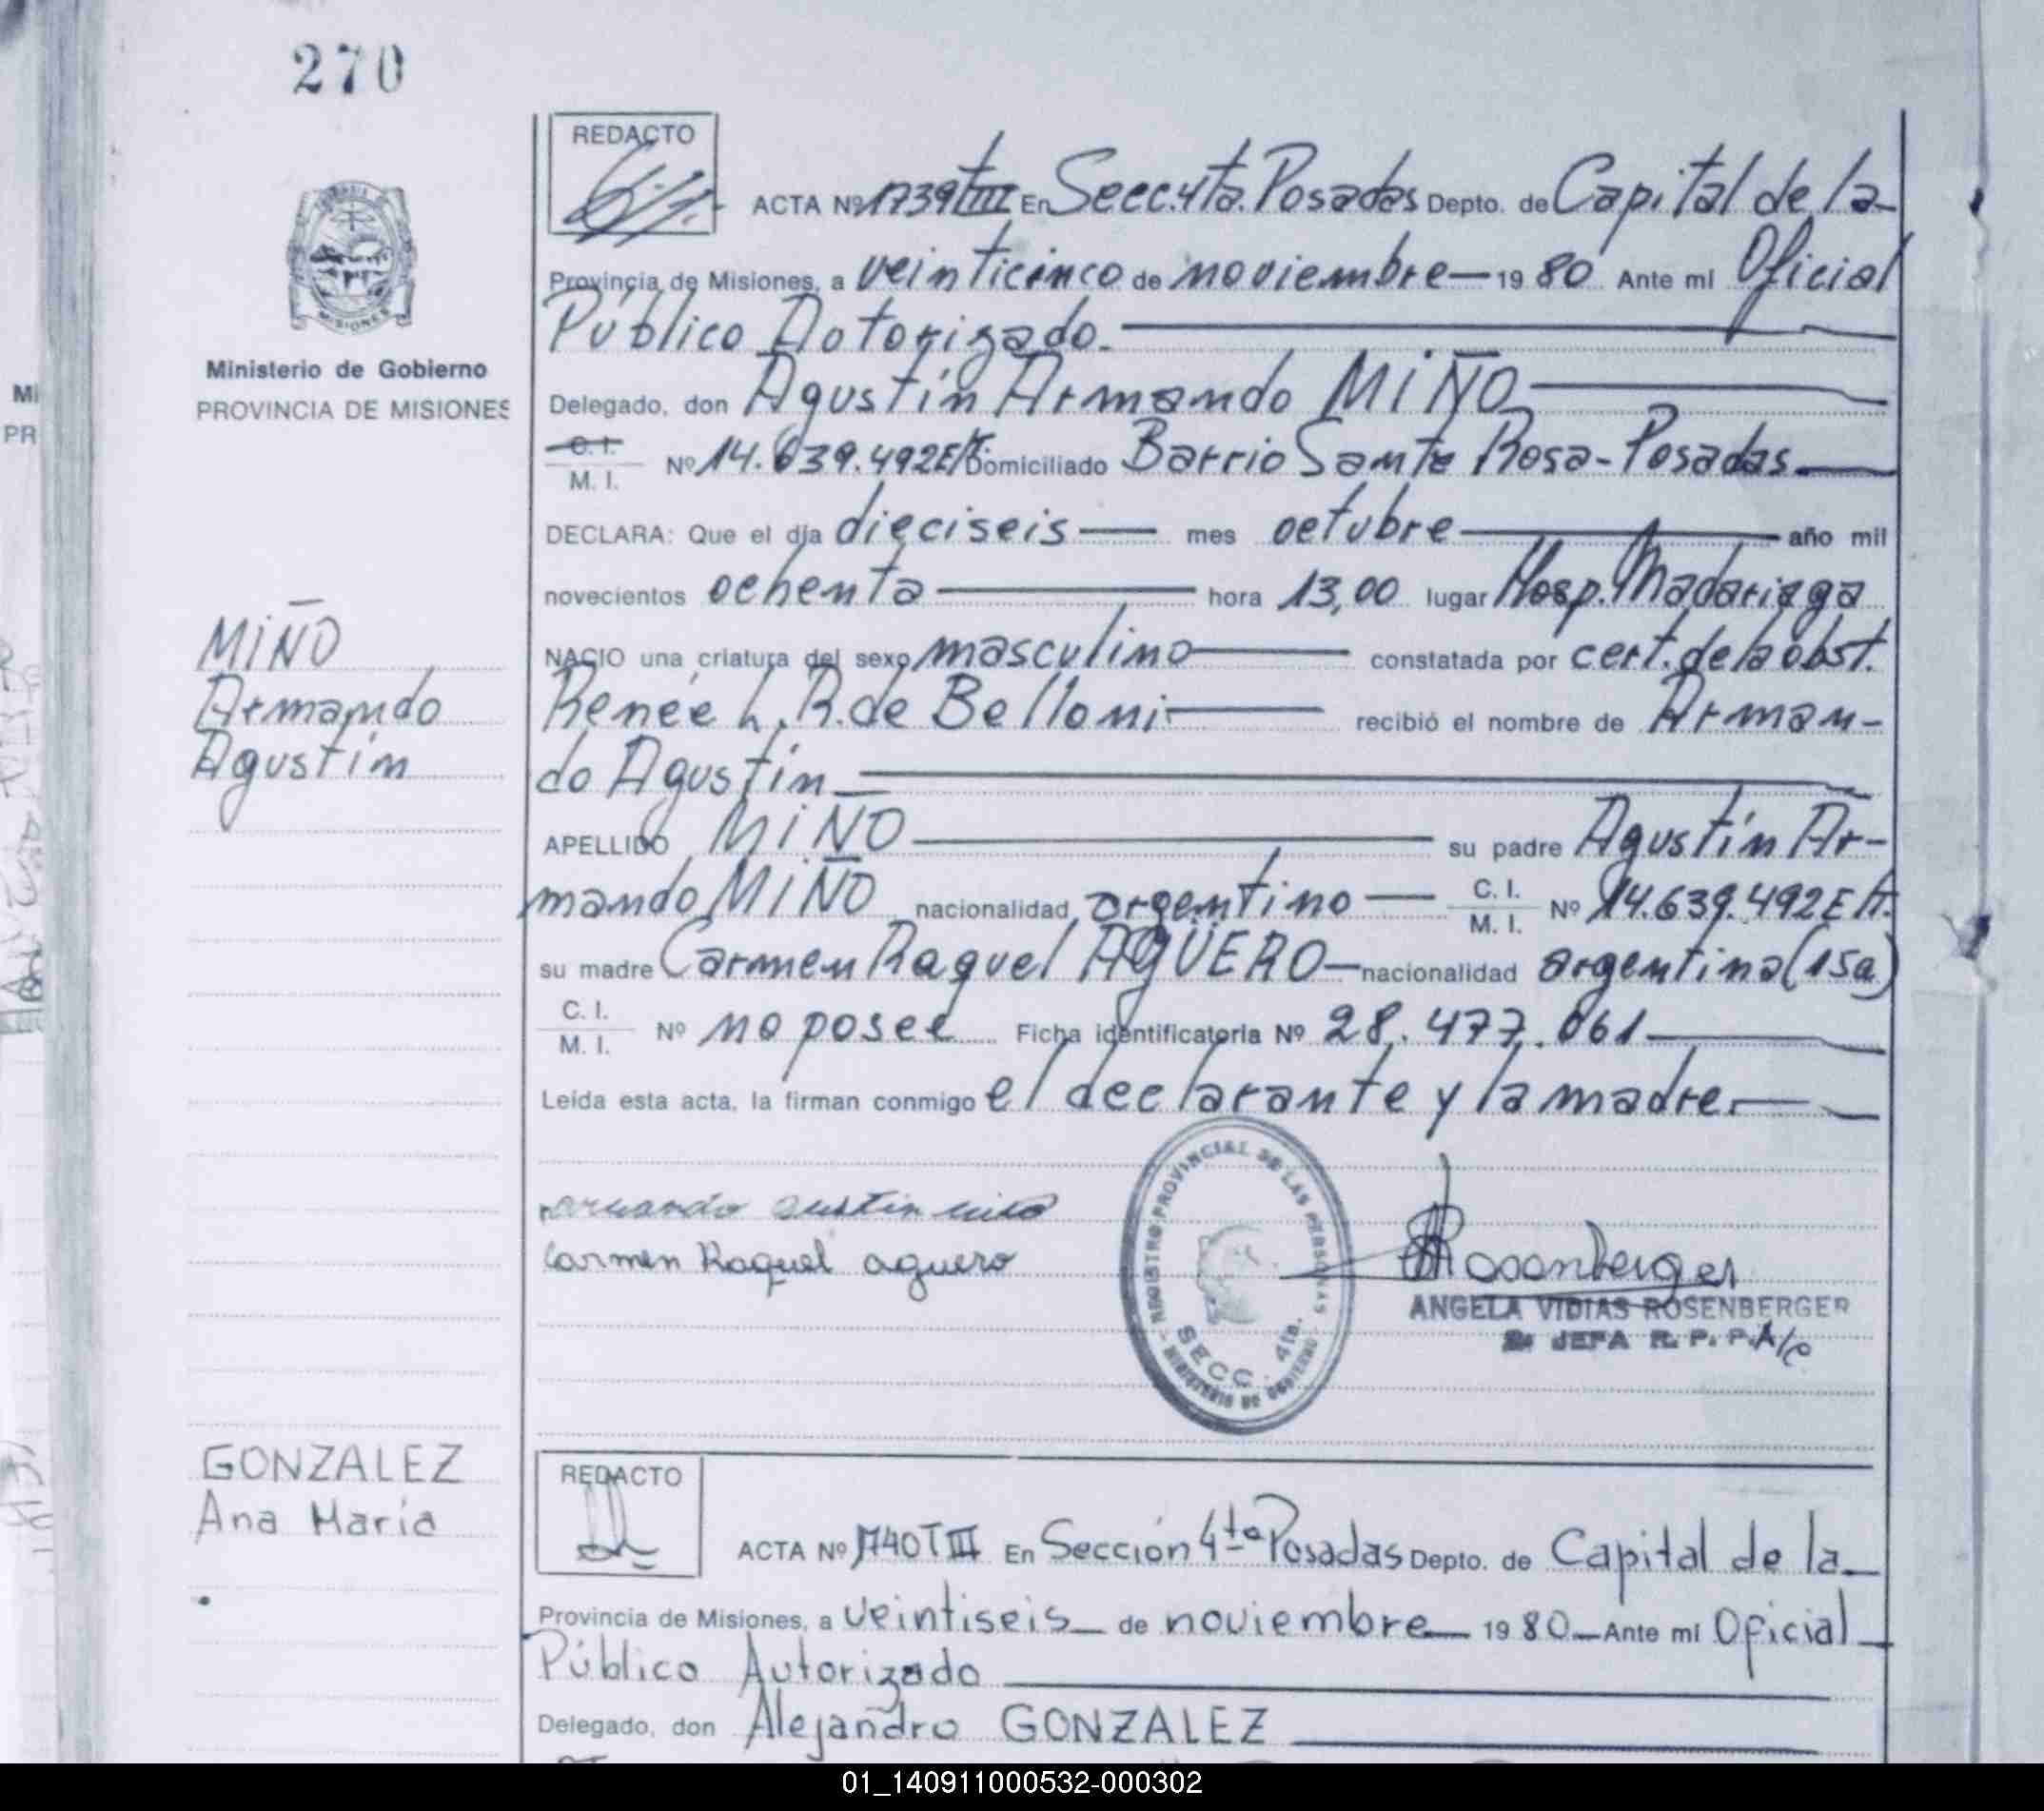 270
REDACTO
ACTA Nº 1739 T III En Secc. 4ta. Posadas Depto. de Capital de la
Provincia de Misiones, a veinticinco de noviembre 19 80 Ante mi Oficial
Público Autorizado.
Ministerio de Gobierno
PROVINCIA DE MISIONES
Delegado, don Agustín Armando MIÑO
C. I.
M. I. Nº 14.639.492 E/T. Domiciliado Barrio Santa Rosa - Posadas.
DECLARA: Que el día dieciseis mes octubre año mil
novecientos ochenta hora 13,00 lugar Hosp. Madariaga
MIÑO
Armando
Agustín
NACIO una criatura del sexo masculino constatada por cert. de la obst.
Renée L. R. de Belloni recibió el nombre de Arman-
do Agustín
APELLIDO MIÑO su padre Agustín Ar-
mando MIÑO nacionalidad argentino C. I.
M. I. Nº 14.639.492 E
su madre Carmen Raquel AGÜERO nacionalidad argentina (15a)
C. I.
M. I. Nº no posee Ficha identificatoria Nº 28.477.061
Leída esta acta, la firman conmigo el declarante y la madre.
Carmen Raquel aguero
REGISTRO PROVINCIAL DE LAS PERSONAS
SECC. 4ta.
MINISTERIO DE GOBIERNO
Rosenberger
ANGELA VIDIAS ROSENBERGER
JEFA R. P. P. A/c
GONZALEZ
Ana María
REDACTO
ACTA Nº 1740 T III En Sección 4ta Posadas Depto. de Capital de la
Provincia de Misiones, a veintiseis de noviembre 19 80 Ante mi Oficial
Público Autorizado
Delegado, don Alejandro GONZALEZ
01_140911000532-000302